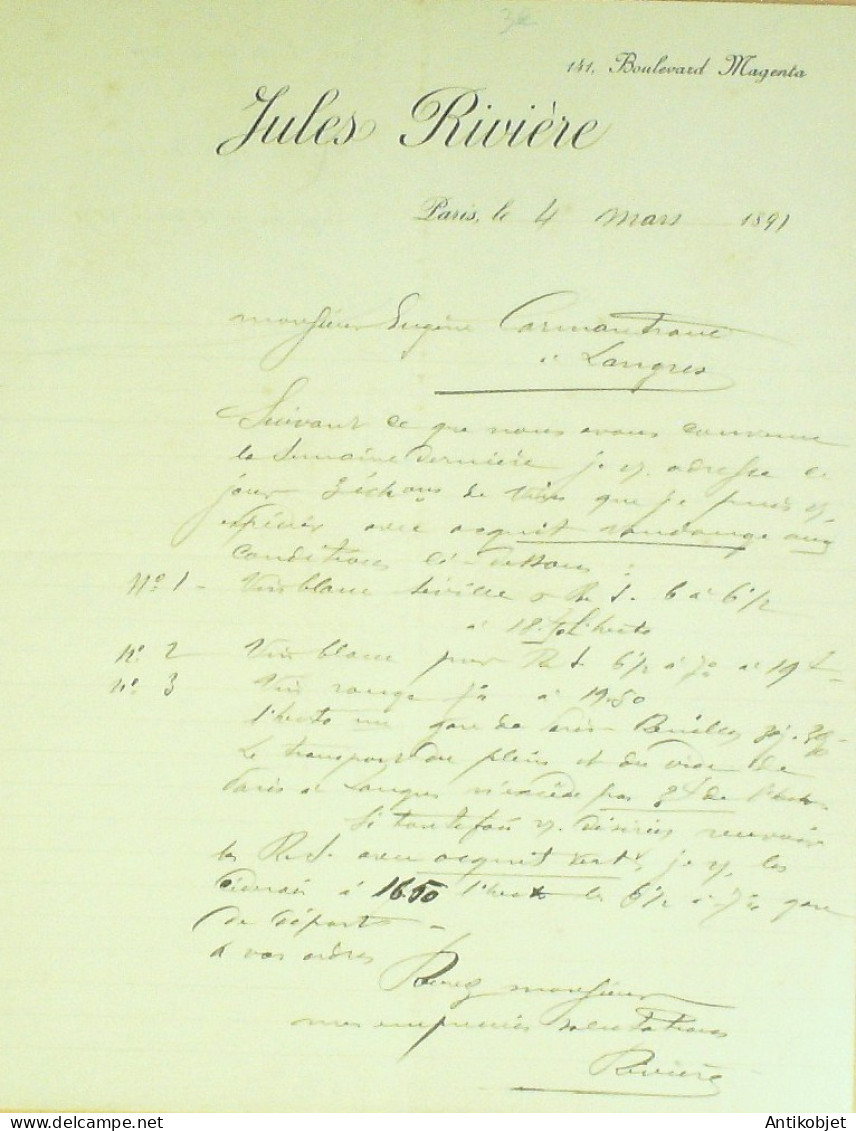 141, Boulevard Magenta
Jules Rivière
Paris, le 4 mars 1891
Monsieur Eugène
à Langres
Suivant ce que nous avons convenu
la Semaine dernière je v. adresse ce
jour 3 échons de vins que je puis v.
expédier avec acquit vendange aux
conditions ci-dessous :
N° 1 - Vin blanc 6 à 6 1/2
à 18. l'hecto
N° 2 Vin blanc pour R S. 6 1/2 à 7° à 19 f
N° 3 Vin rouge à 19.50
l'hecto nu gare de
Le transport du plein et du vide de
Paris à Langres n'excède pas de l'hecto
Si toutefois v. désiriez recevoir
les R. S. avec acquit vert, je v. les
à 16.50 l'hecto les 6 1/2 à 7° gare
de départ -
à vos ordres
Recevez monsieur
mes empressées salutations
Rivière
Antikobjet